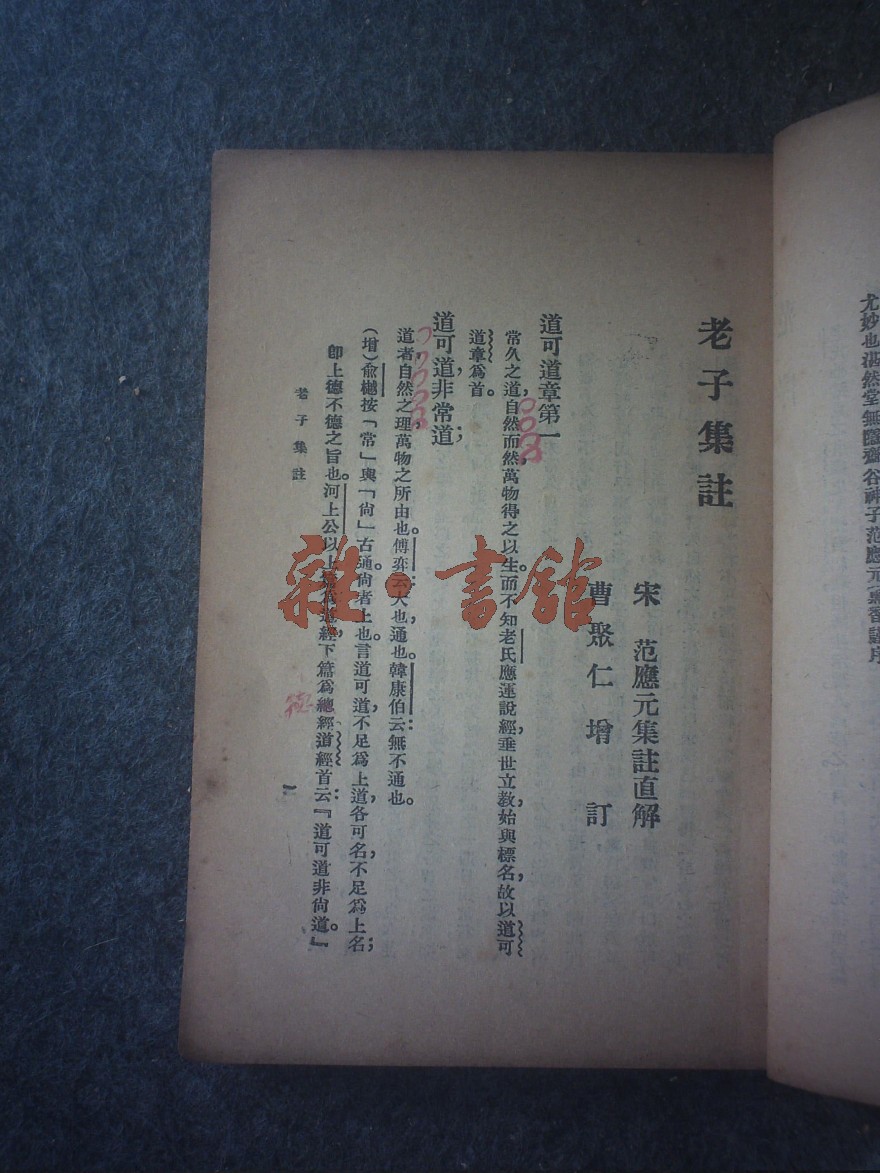 尤妙也湛然堂無隱齋谷神子范應元
序
老子集註
宋　范應元集註直解
曹聚仁增訂
道可道章第一
常久之道，自然而然，萬物得之以生。而不知老氏應運說經，垂世立教，始與標名，故以道可
道章爲首。
道可道，非常道；
道者自然之理，萬物之所由也。傅弈云：大也，通也。韓康伯云：無不通也。
（增）俞樾按「常」與「尙」古通。尙者上也。言道可道，不足爲上道，各可名，不足爲上名；
卽上德不德之旨也。河上公以上篇爲道經，下篇爲總經。道經首云：『道可道非尙道。』
德
老子集註
一
雜·書館